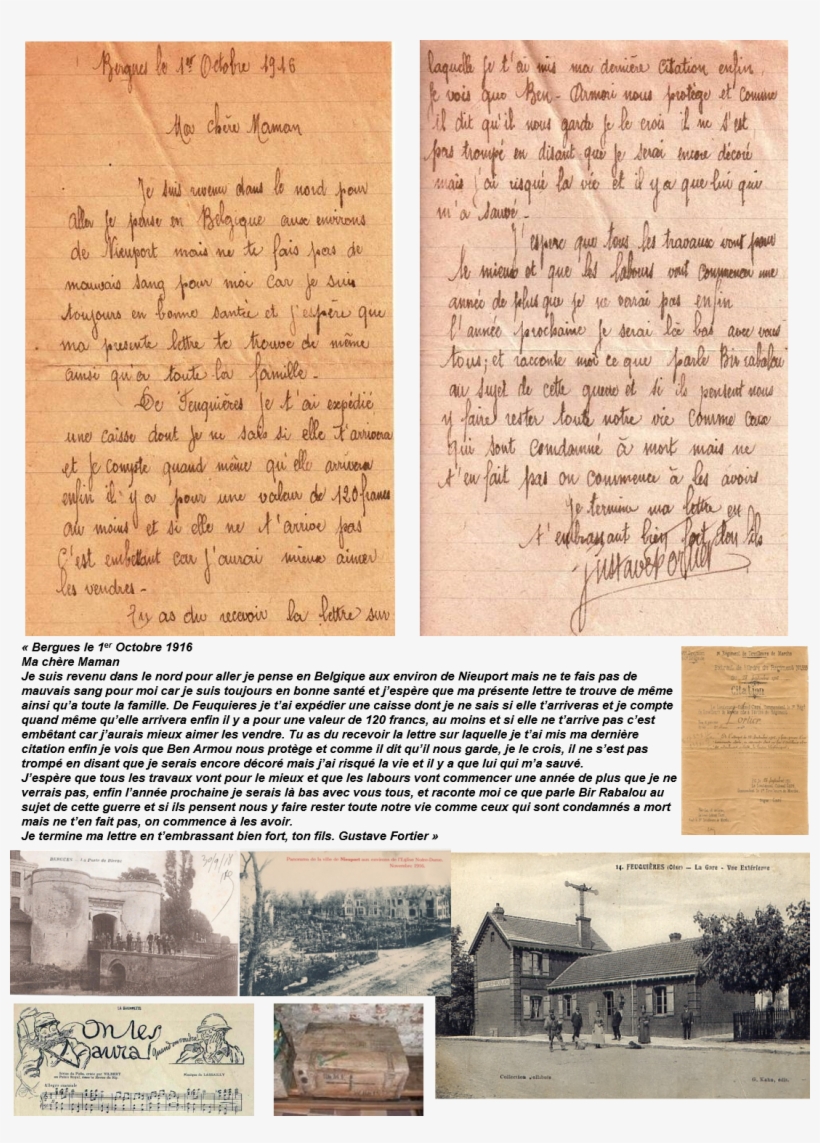 Bergues le 1er Octobre 1916
Ma chère Maman
Je suis revenu dans le nord pour
aller je pense en Belgique aux environs
de Nieuport mais ne te fais pas de
mauvais sang pour moi car je suis
toujours en bonne santée et j'espère que
ma presente lettre te trouve de même
ainsi qu'a toute la famille -
De Feuquières je t'ai expédié
une caisse dont je ne sais si elle t'arrivera
et je compte quand même qu'elle arrivera
enfin il y a pour une valeur de 120 francs
au moins et si elle ne t'arrive pas
C'est embettant car j'aurai mieux aimer
les vendres -
Tu as du recevoir la lettre sur
laquelle je t'ai mis ma dernière citation enfin
je vois que Ben-Armori nous protège et comme
il dit qu'il nous garde je le crois il ne s'est
pas trompé en disant que je serai encore décoré
mais j'ai risqué la vie et il y a que lui qui
m'a sauvé -
J'espere que tous les travaux vont pour
le mieux et que les labours vont commencer une
année de plus que je ne verai pas enfin
l'année prochaine je serai làe bas avec vous
tous, et raconte moi ce que parle Bir rabalou
au sujet de cette guerre et si ils pensent nous
y faire rester toute notre vie comme ceux
qui sont comdamné à mort mais ne
t'en fait pas on commence à les avoirs
Je termine ma lettre en
t'embrassant bien fort ton fils
Gustave Fortier
« Bergues le 1er Octobre 1916
Ma chère Maman
Je suis revenu dans le nord pour aller je pense en Belgique aux environ de Nieuport mais ne te fais pas de
mauvais sang pour moi car je suis toujours en bonne santé et j'espère que ma présente lettre te trouve de même
ainsi qu'a toute la famille. De Feuquieres je t'ai expédier une caisse dont je ne sais si elle t'arriveras et je compte
quand même qu'elle arrivera enfin il y a pour une valeur de 120 francs, au moins et si elle ne t'arrive pas c'est
embêtant car j'aurais mieux aimer les vendre. Tu as du recevoir la lettre sur laquelle je t'ai mis ma dernière
citation enfin je vois que Ben Armou nous protège et comme il dit qu'il nous garde, je le crois, il ne s'est pas
trompé en disant que je serais encore décoré mais j'ai risqué la vie et il y a que lui qui m'a sauvé.
J'espère que tous les travaux vont pour le mieux et que les labours vont commencer une année de plus que je ne
verrais pas, enfin l'année prochaine je serais là bas avec vous tous, et raconte moi ce que parle Bir Rabalou au
sujet de cette guerre et si ils pensent nous y faire rester toute notre vie comme ceux qui sont condamnés a mort
mais ne t'en fait pas, on commence à les avoir.
Je termine ma lettre en t'embrassant bien fort, ton fils. Gustave Fortier »
Citation
Fortier
BERGUES
30/9/18
Panorama de la ville de Nieuport aux environs de l'Eglise Notre-Dame.
Novembre
14. FEUQUIÈRES (Oise) — La Gare - Vue Extérieure
On les
aura!
Quand on voudra
Collection